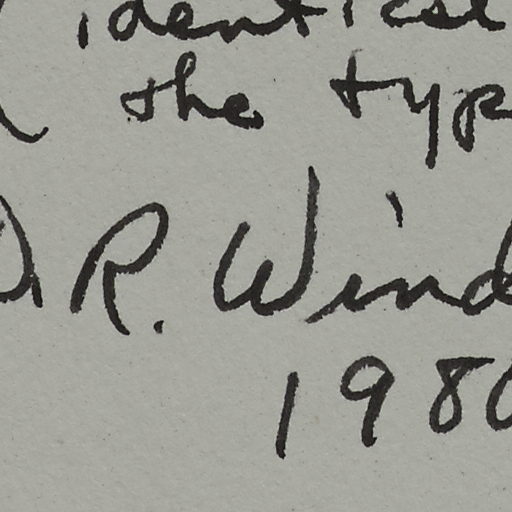 identical
the typ
R. Wind
1980